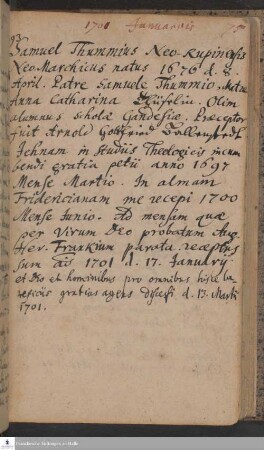 1701 Januarius 75
93.
Samuel Thummius Neo Rupinensis
Neo Marchicus natus 1676 d. 8.
April. Patre Samuele Thummio, Matre
Anna Catharina Olim
alumnus scholæ Præceptor
fuit Arnold Gottfried
Jehnam in studiis Theologicis incum
bendi gratia petii anno 1697
Mense Martio. In almam
Fridericianam me recepi 1700
Mense Junio. Ad mensam quæ
per Virum Deo probatum Aug.
Her. Frankium parata receptus
sum Ao 1701 d. 17. January
et Deo et hominibus pro omnibus hisce be
neficiis gratias agens discessi d. 17. Martii
1701.